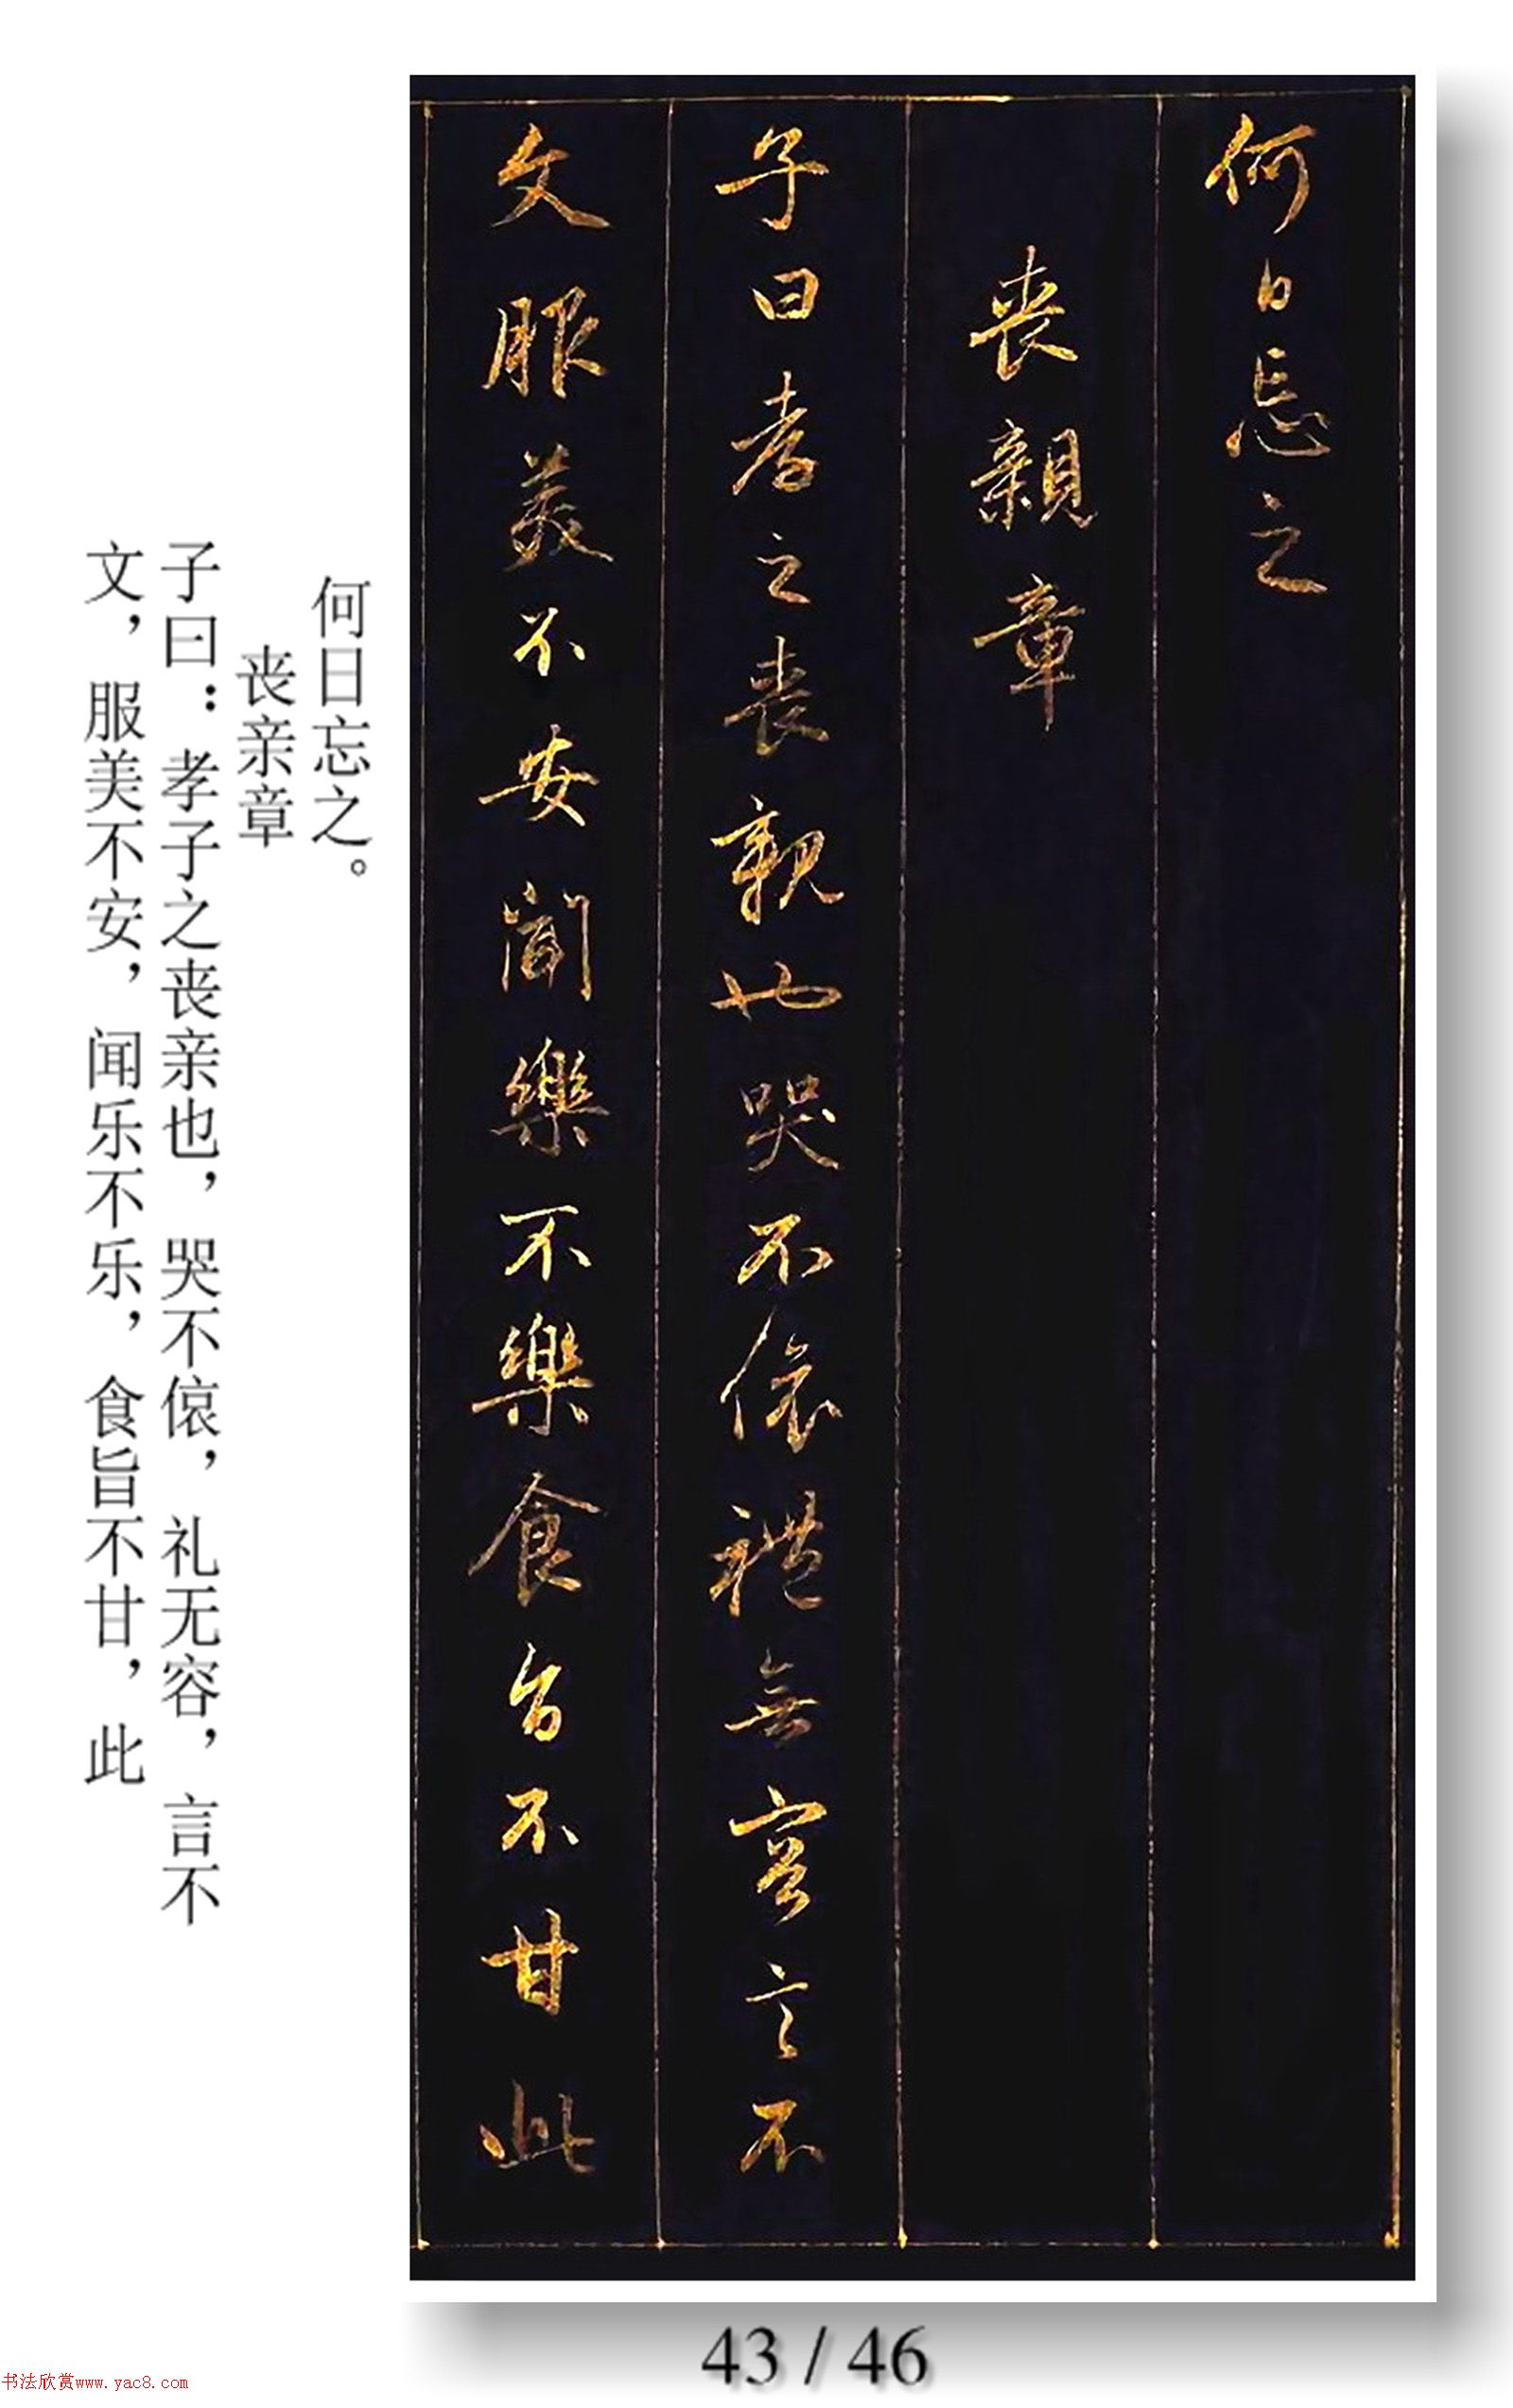 何日忘之
喪親章
子曰孝之喪親也哭不偯禮無容言不
文服美不安聞樂不樂食旨不甘此
何日忘之。
丧亲章
子曰：孝子之丧亲也，哭不偯，礼无容，言不
文，服美不安，闻乐不乐，食旨不甘，此
43 / 46
书法欣赏www.yac8.com